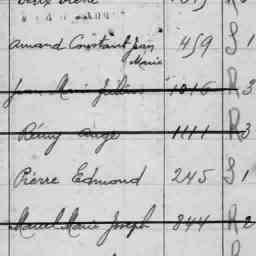 Amand Constant Jean 459 S 1
Marie
Jean Marie 1016 R 3
Rémy Ange 1111 R 3
Pierre Edmond 245 S 1
Marcel Marie Joseph 844 R 2